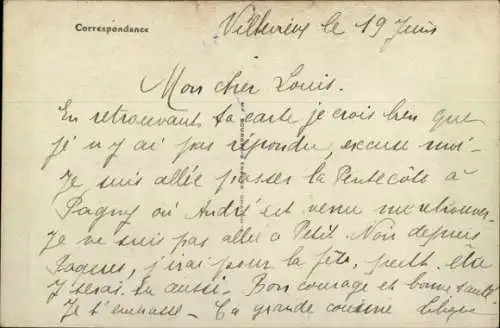 Correspondance
le 19 Juin
Mon cher Louis.
En retrouvant ta carte je crois bien que
je n'y ai pas répondu, excuse moi -
Je suis allée passer la Pentecôte à
Pagny où André est venu me retrouver.
Je ne suis pas allée à Petit. Non depuis
Paques, j'irai pour la fête, peut être
y seras-tu aussi - Bon courage et bonne santé
Je t'embrasse - Ta grande cousine